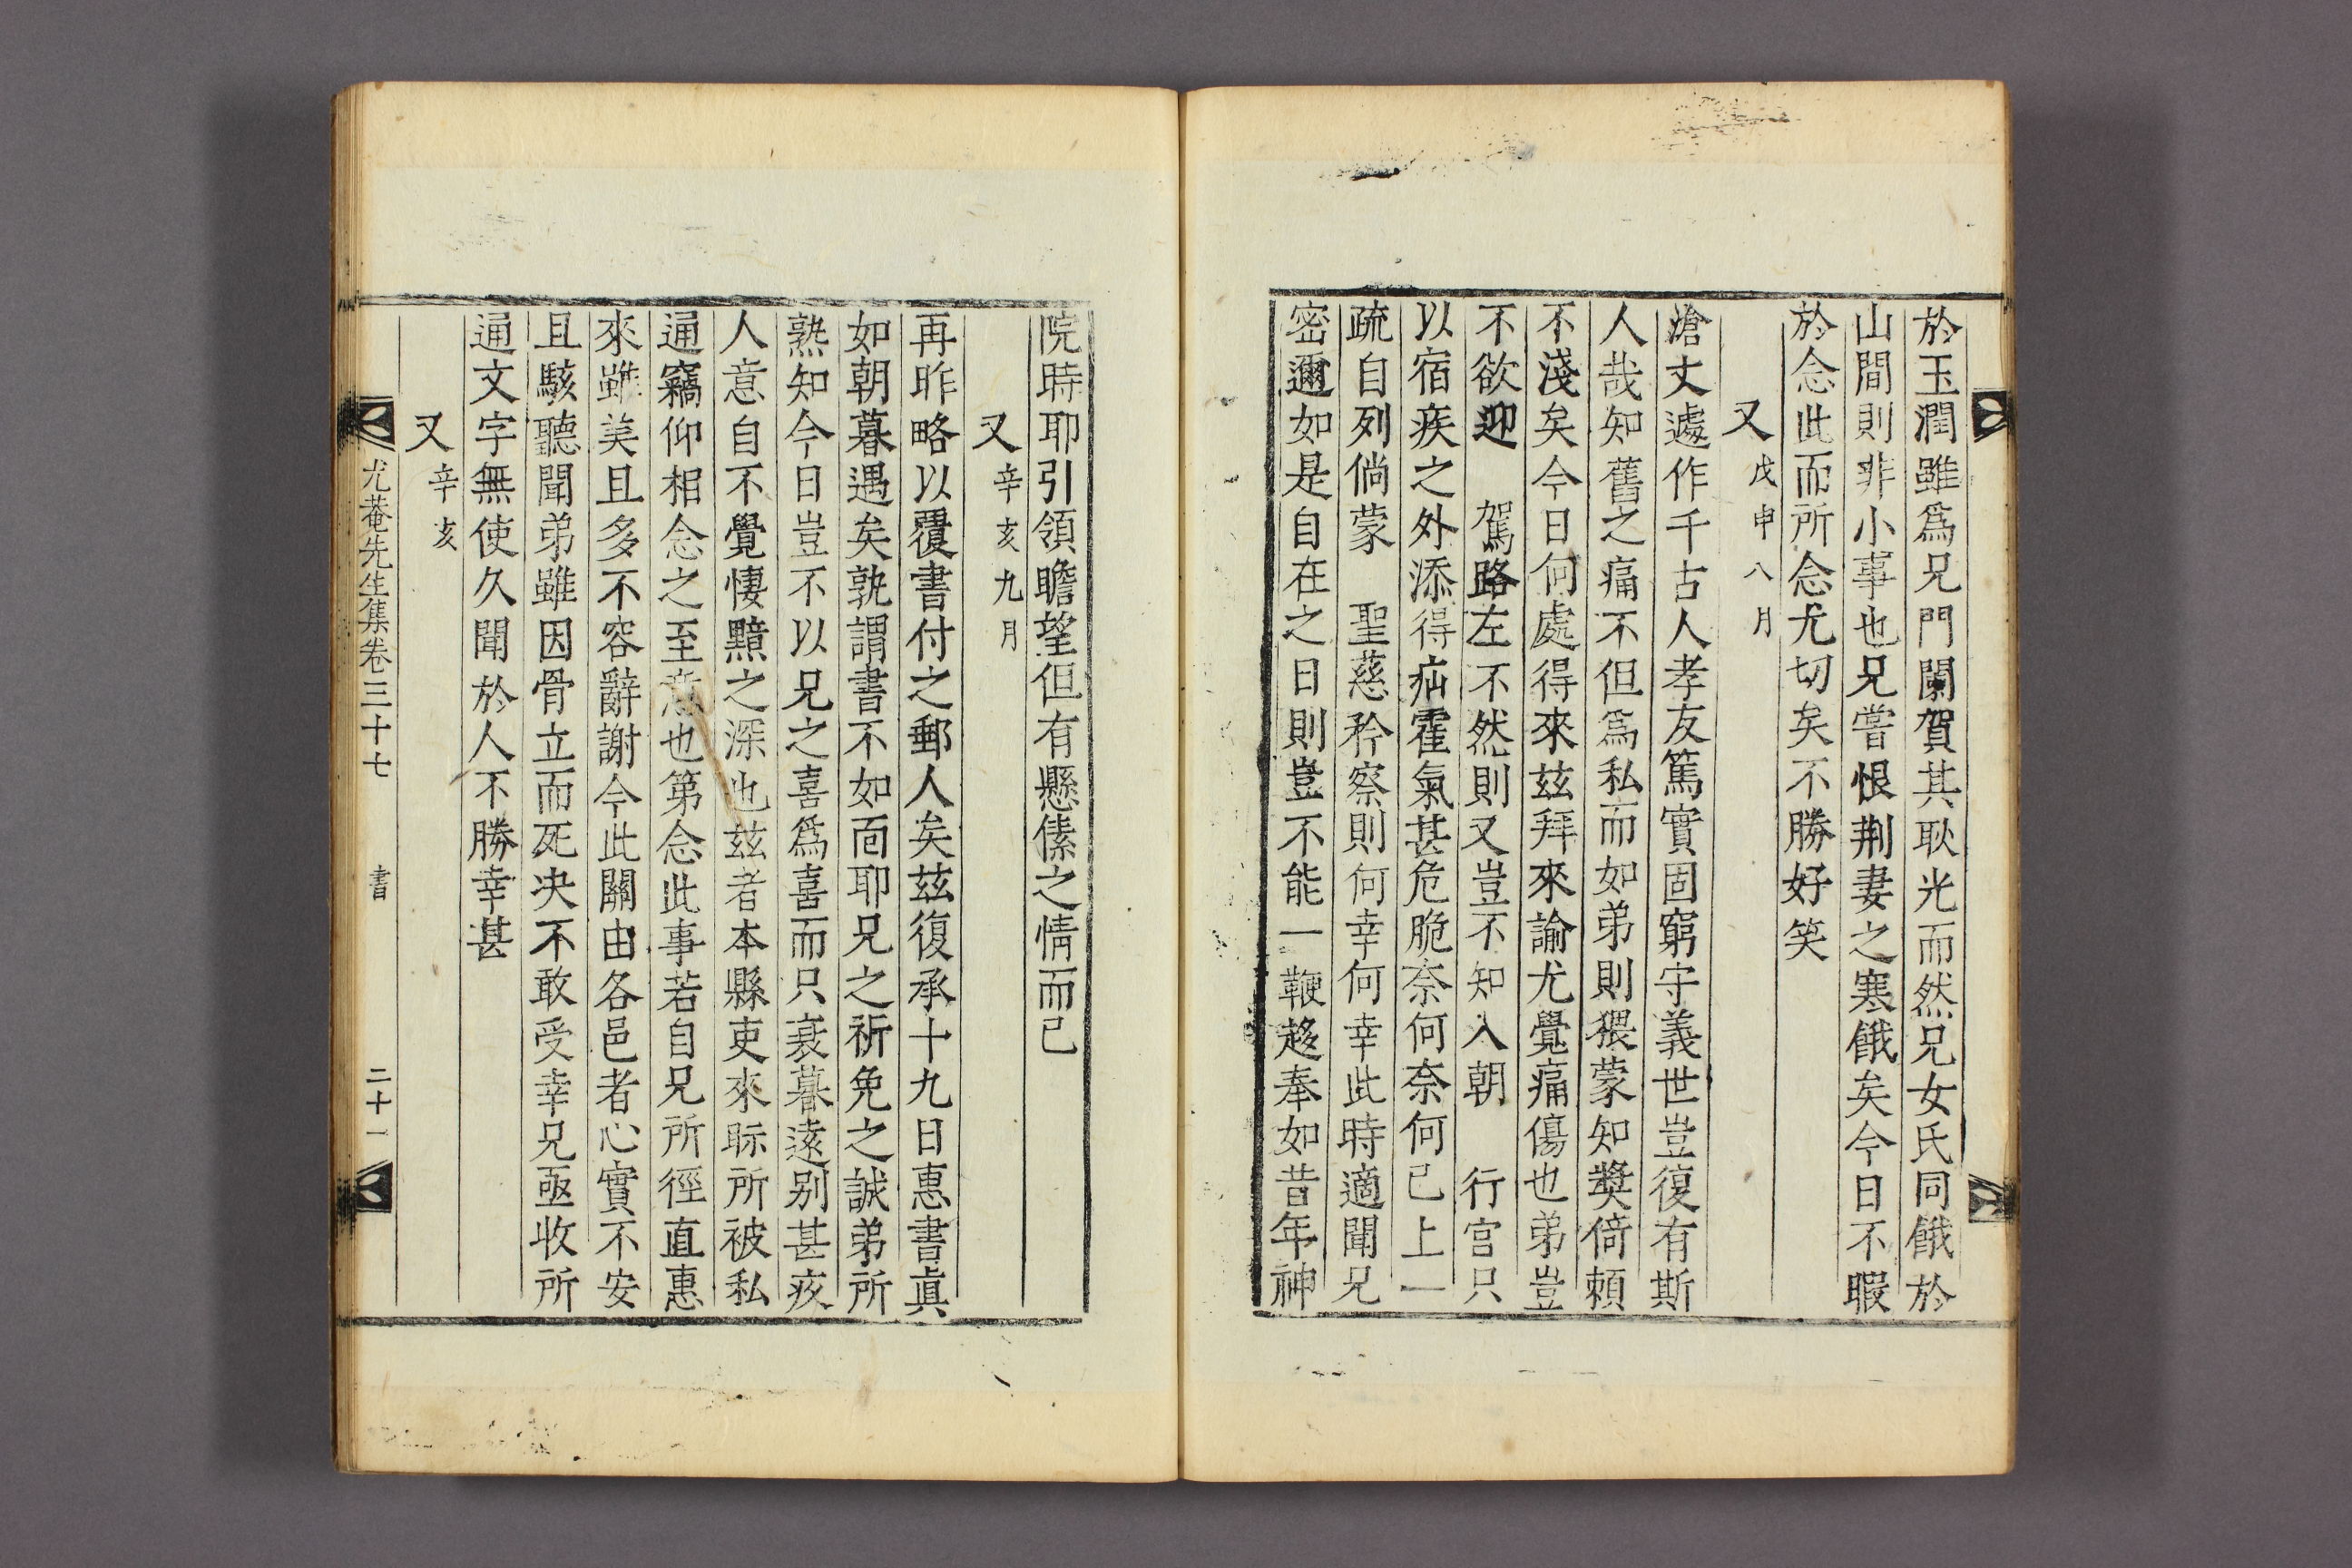 於玉潤雖爲兄門闌賀其耿光而然兄女氏同餓於
山間則非小事也兄嘗恨荆妻之寒餓矣今日不暇
於念此而所念尤切矣不勝好笑
又 戊申八月
滄丈遽作千古人孝友篤實固窮守義世豈復有斯
人哉知舊之痛不但爲私而如弟則猥蒙知奬倚賴
不淺矣今日何處得來玆拜來諭尤覺痛傷也弟豈
不欲迎 駕路左不然則又豈不知入朝 行宮只
以宿疾之外添得疝霍氣甚危脆奈何奈何已上一
疏自列倘蒙 聖慈矜察則何幸何幸此時適聞兄
密邇如是自在之日則豈不能一鞭趍奉如昔年神
院時耶引領瞻望但有懸傃之情而已
又 辛亥九月
再昨略以覆書付之郵人矣玆復承十九日惠書眞
如朝暮遇矣孰謂書不如面耶兄之祈免之誠弟所
熟知今日豈不以兄之喜爲喜而只衰暮遠别甚疚
人意自不覺悽黯之深也玆者本縣吏來眎所被私
通竊仰相念之至意也第念此事若自兄所徑直惠
來雖美且多不容辭謝今此關由各邑者心實不安
且駭聽聞弟雖因骨立而死决不敢受幸兄亟收所
通文字無使久聞於人不勝幸甚
又 辛亥
尤菴先生集卷三十七 書 二十一